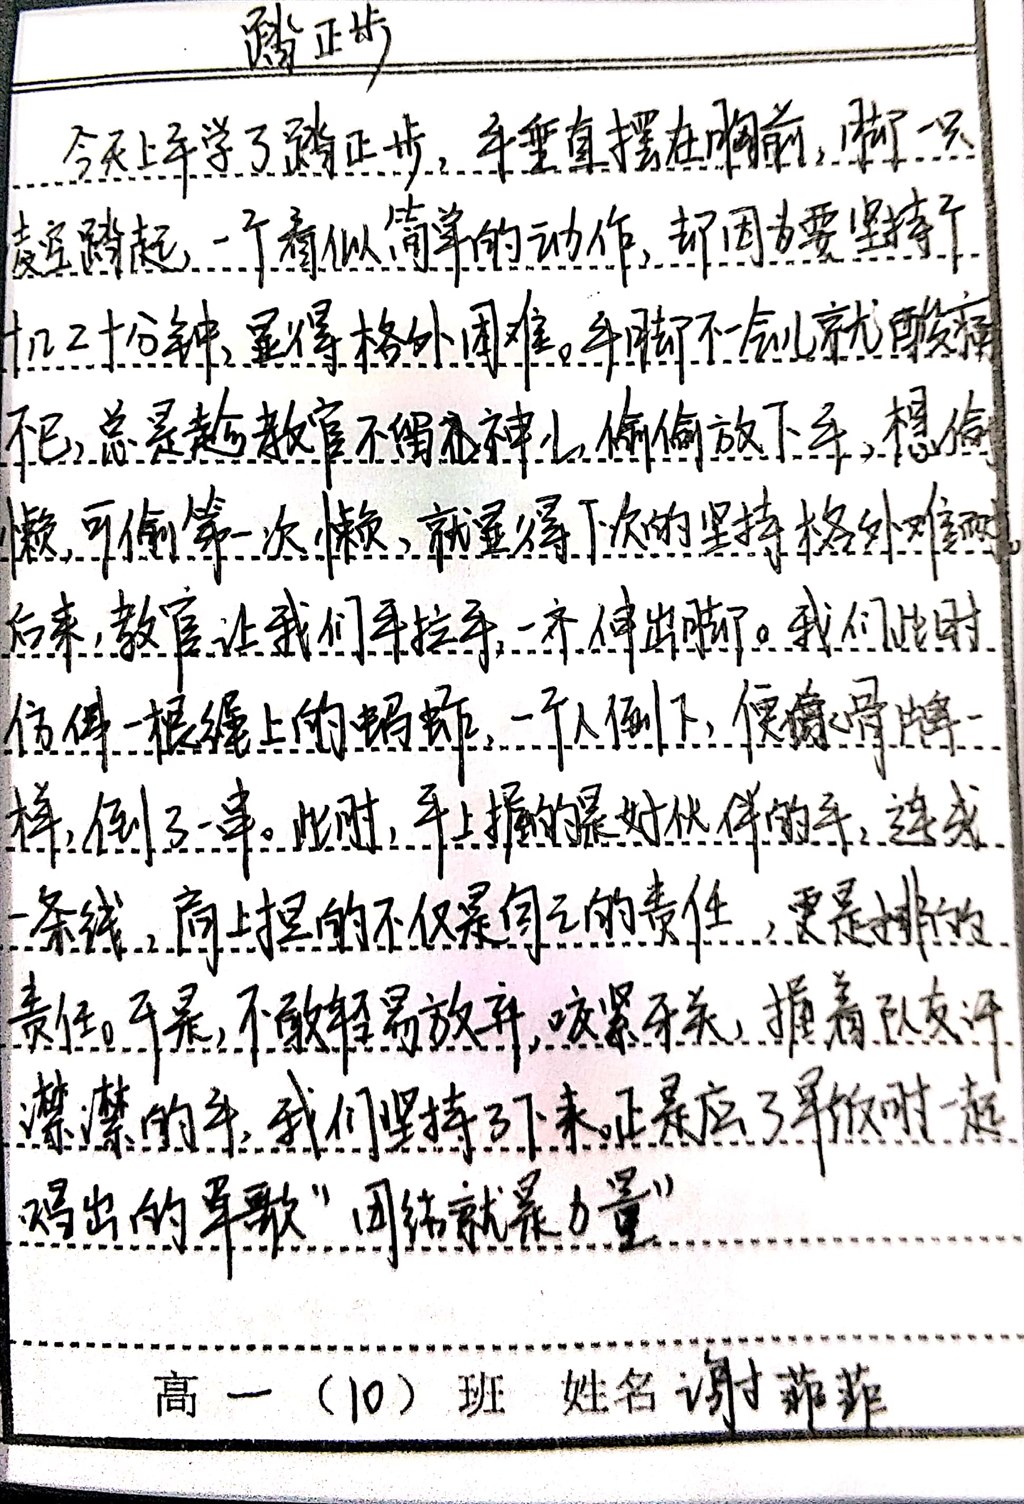 踏正步
今天上午学了踏正步，手垂直摆在胸前，脚一只
凌空踏起，一个看似简单的动作，却因为要坚持个
十几二十分钟，显得格外困难。手脚不一会儿就酸痛
不已，总是趁教官不留神儿，偷偷放下手，想偷
懒，可偷第一次懒，就显得下次的坚持格外难耐。
后来，教官让我们手拉手，一齐伸出脚。我们此时
仿佛一根绳上的蚂蚱，一个人倒下，便像骨牌一
样，倒了一串。此时，手上握的是好伙伴的手，连成
一条线，肩上担的不仅是自己的责任，更是排的
责任。于是，不敢轻易放弃，咬紧牙关，握着队友汗
漾漾的手，我们坚持了下来。正是应了早饭时一起
唱出的军歌"团结就是力量"
高一（10）班 姓名 谢菲菲